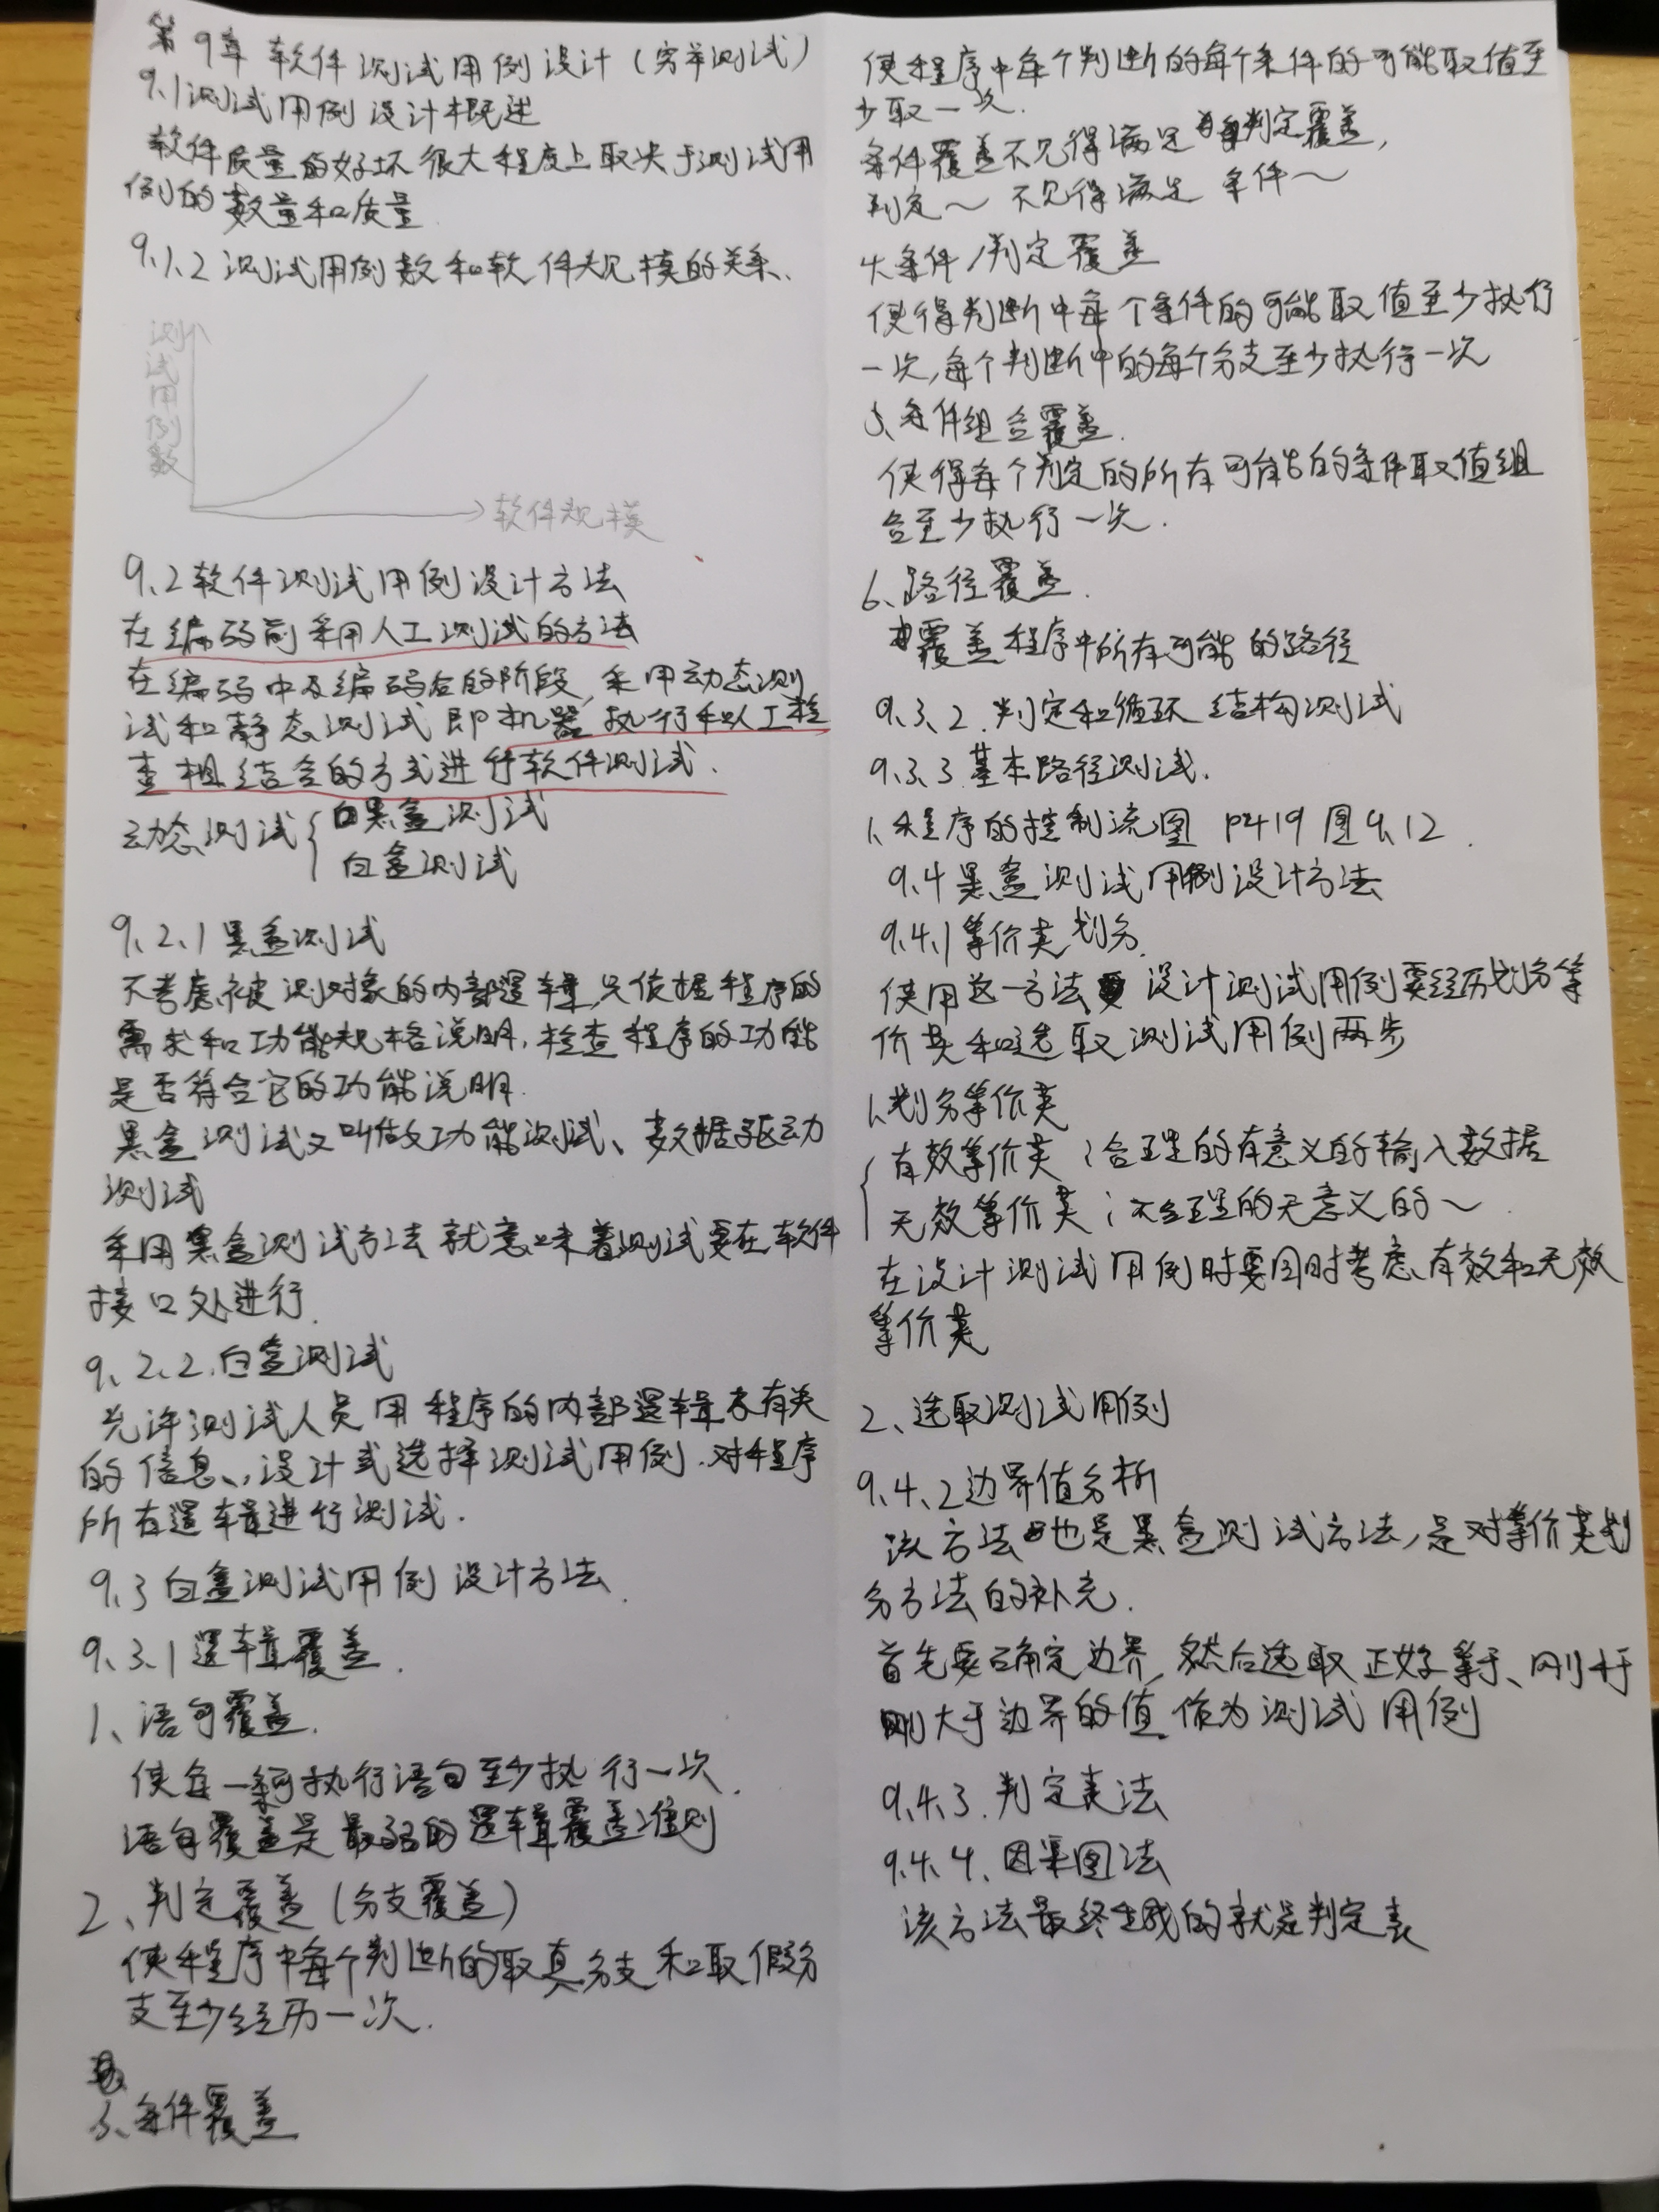 第9章 软件测试用例设计（穷举测试）
9.1测试用例设计概述
软件质量的好坏很大程度上取决于测试用
例的数量和质量
9.1.2 测试用例数和软件规模的关系、
测试用例数
软件规模
9.2软件测试用例设计方法
在编码前采用人工测试的方法
在编码中及编码后的阶段，采用动态测
试和静态测试即机器执行和人工检
查相结合的方式进行软件测试.
动态测试{黑盒测试
白盒测试
9.2.1黑盒测试
不考虑被测对象的内部逻辑，只依据程序的
需求和功能规格说明，检查程序的功能
是否符合它的功能说明.
黑盒测试又叫做功能测试、数据驱动
测试
采用黑盒测试方法就意味着测试要在软件
接口处进行.
9.2.2.白盒测试
允许测试人员用程序的内部逻辑有关
的信息，设计或选择测试用例.对程序
所有逻辑进行测试.
9.3白盒测试用例设计方法.
9.3.1逻辑覆盖.
1、语句覆盖.
使每一条可执行语句至少执行一次.
语句覆盖是最弱的逻辑覆盖准则
2、判定覆盖（分支覆盖）
使程序中每个判断的取真分支和取假分
支至少经历一次.
3、条件覆盖
使程序中每个判断的每个条件的可能取值至
少取一次.
条件覆盖不见得满足判定覆盖，
判定～ 不见得满足 条件～
4.条件/判定覆盖
使得判断中每个条件的可能取值至少执行
一次，每个判断中的每个分支至少执行一次
5、条件组合覆盖.
使得每个判定的所有可能的条件取值组
合至少执行一次.
6、路径覆盖.
覆盖程序中所有可能的路径
9.3.2.判定和循环结构测试
9.3.3 基本路径测试.
1、程序的控制流图 P419 图9.12.
9.4 黑盒测试用例设计方法
9.4.1等价类划分.
使用这一方法设计测试用例要经历划分等
价类和选取测试用例两步
1.划分等价类
{有效等价类：合理的有意义的输入数据
无效等价类：不合理的无意义的～
在设计测试用例时要同时考虑有效和无效
等价类
2、选取测试用例
9.4.2边界值分析
该方法也是黑盒测试方法，是对等价类划
分方法的补充.
首先要确定边界，然后选取正好等于、刚于
刚大于边界的值作为测试用例
9.4.3.判定表法
9.4.4.因果图法
该方法最终生成的就是判定表